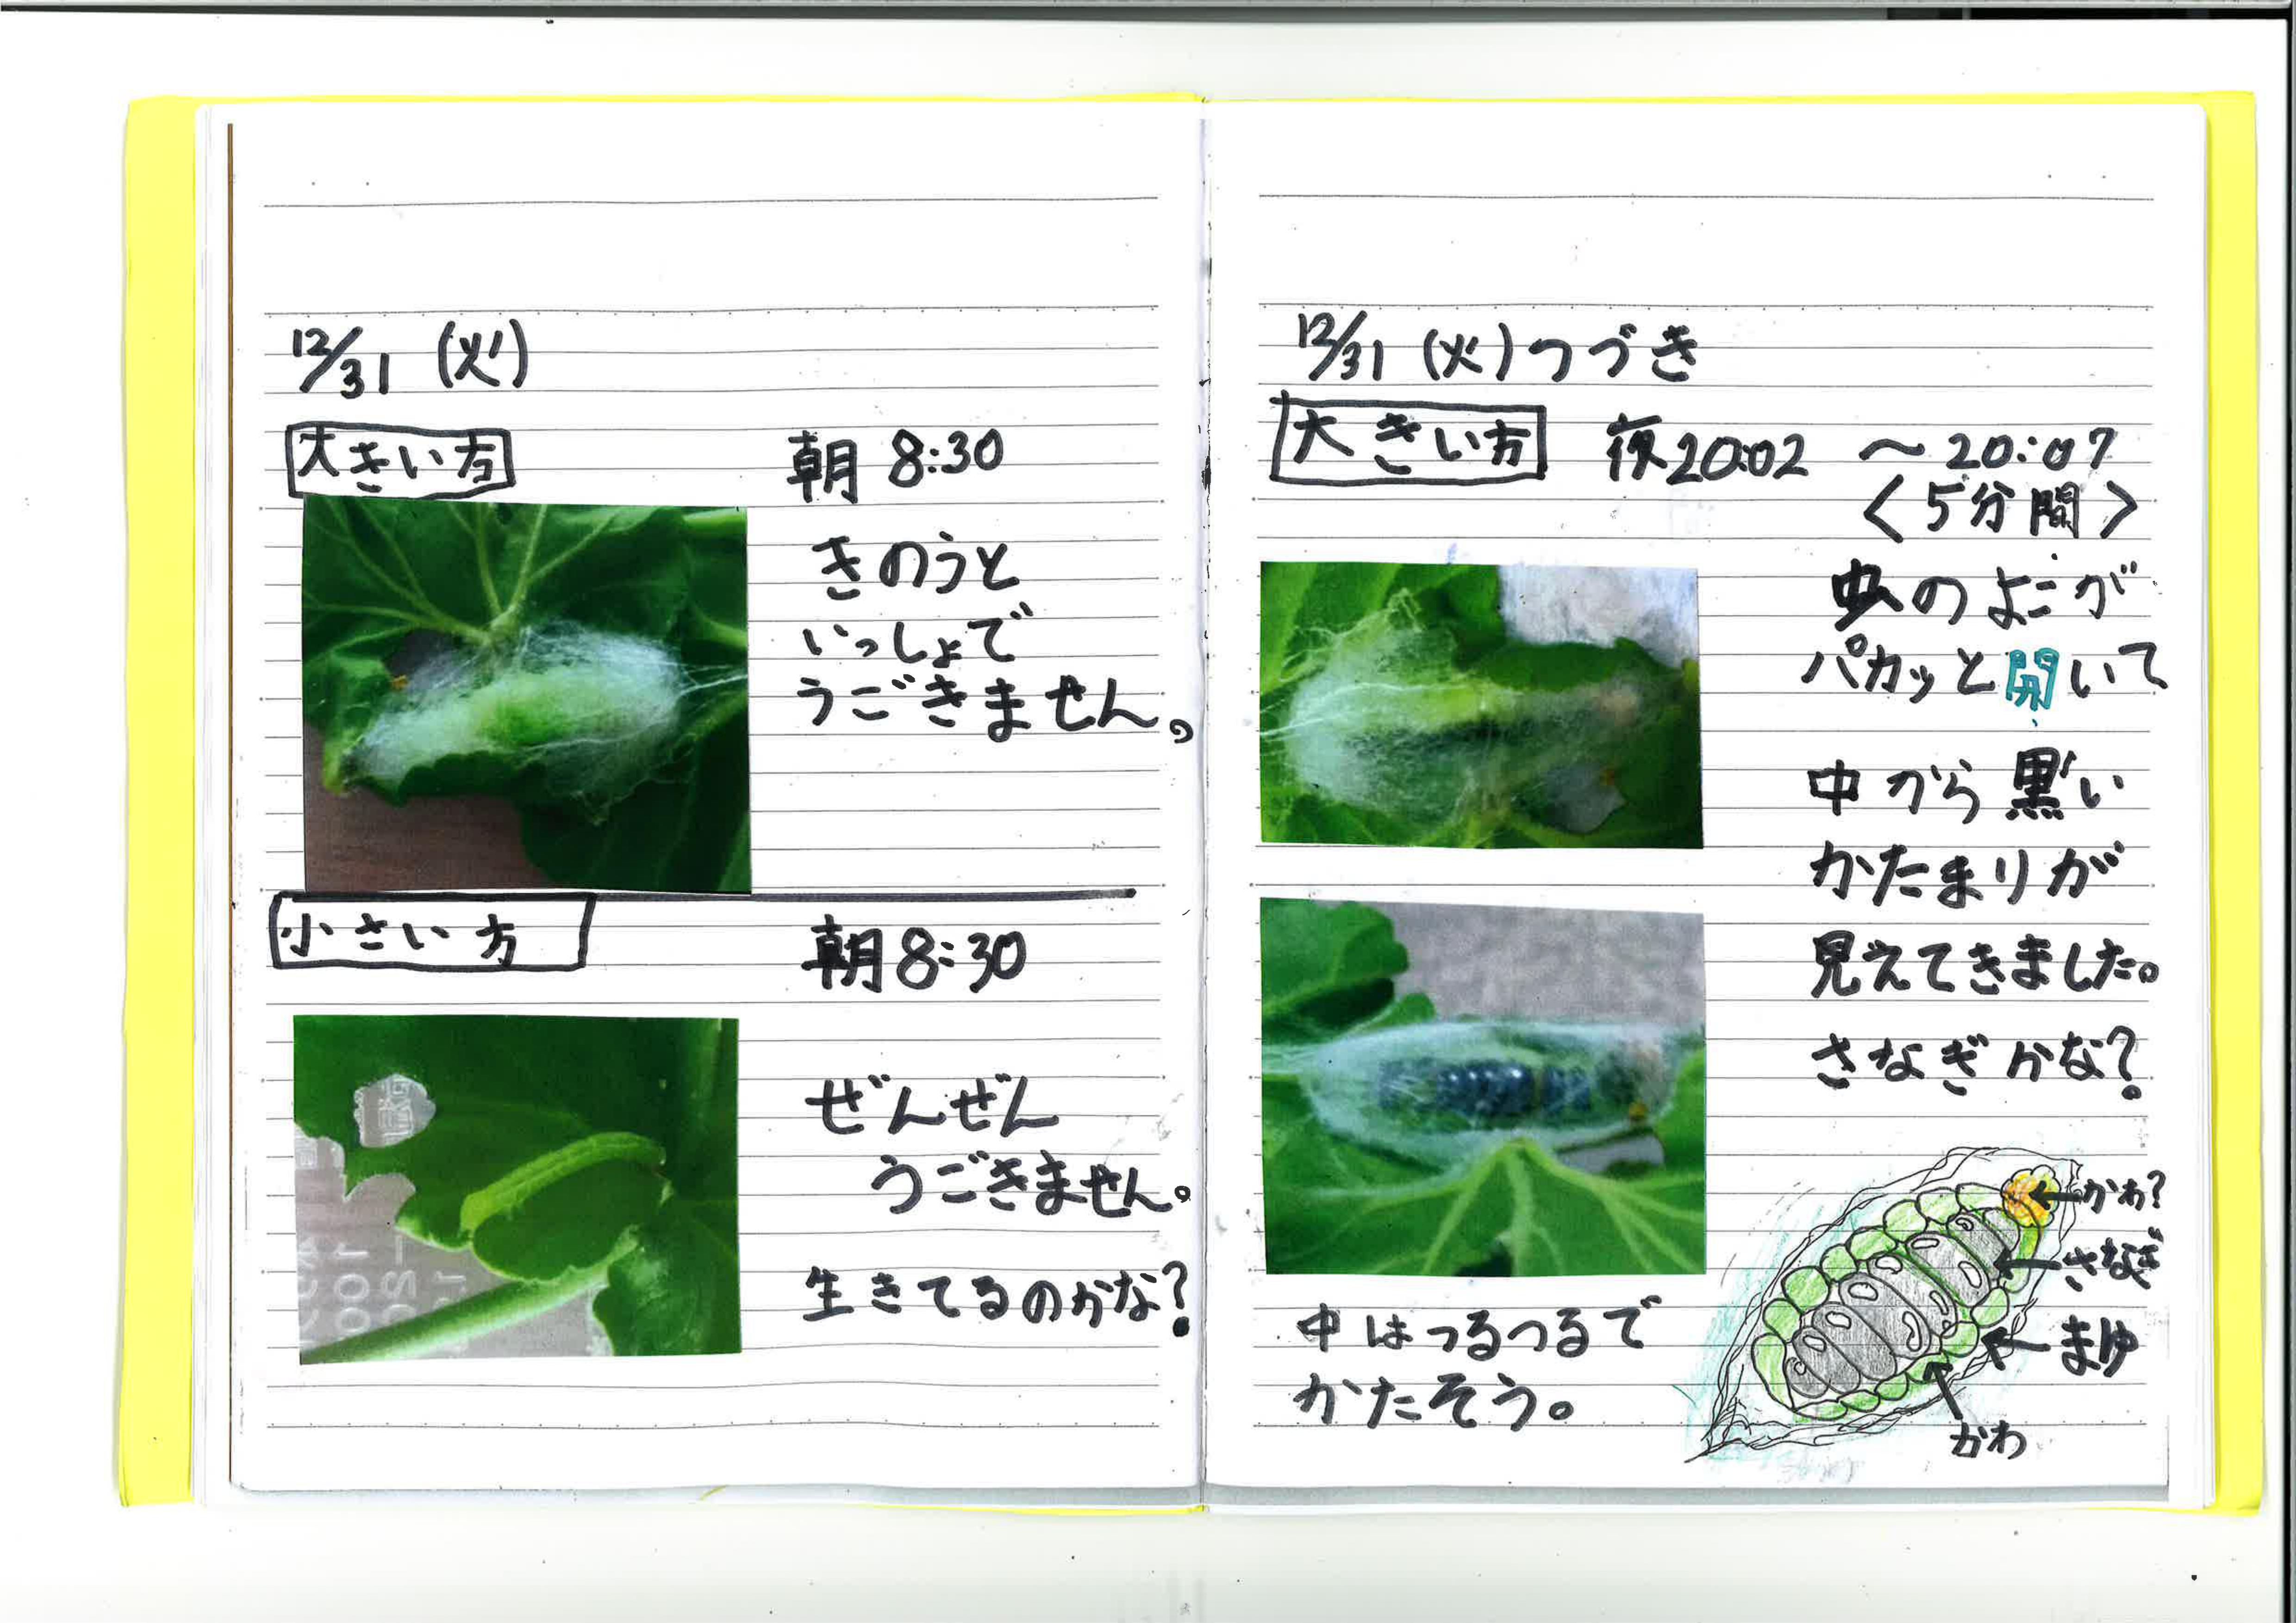 12/31 (火)
大きい方 朝 8:30
きのうと
いっしょで
うごきません。
小さい方 朝8:30
ぜんぜん
うごきません。
生きてるのかな?
12/31 (火)つづき
大きい方 夜20:02 〜20:07
<5分間>
虫のよこが
パカッと開いて
中から黒い
かたまりが
見えてきました。
さなぎかな?
かわ?
さなぎ
まゆ
かわ
中はつるつるで
かたそう。